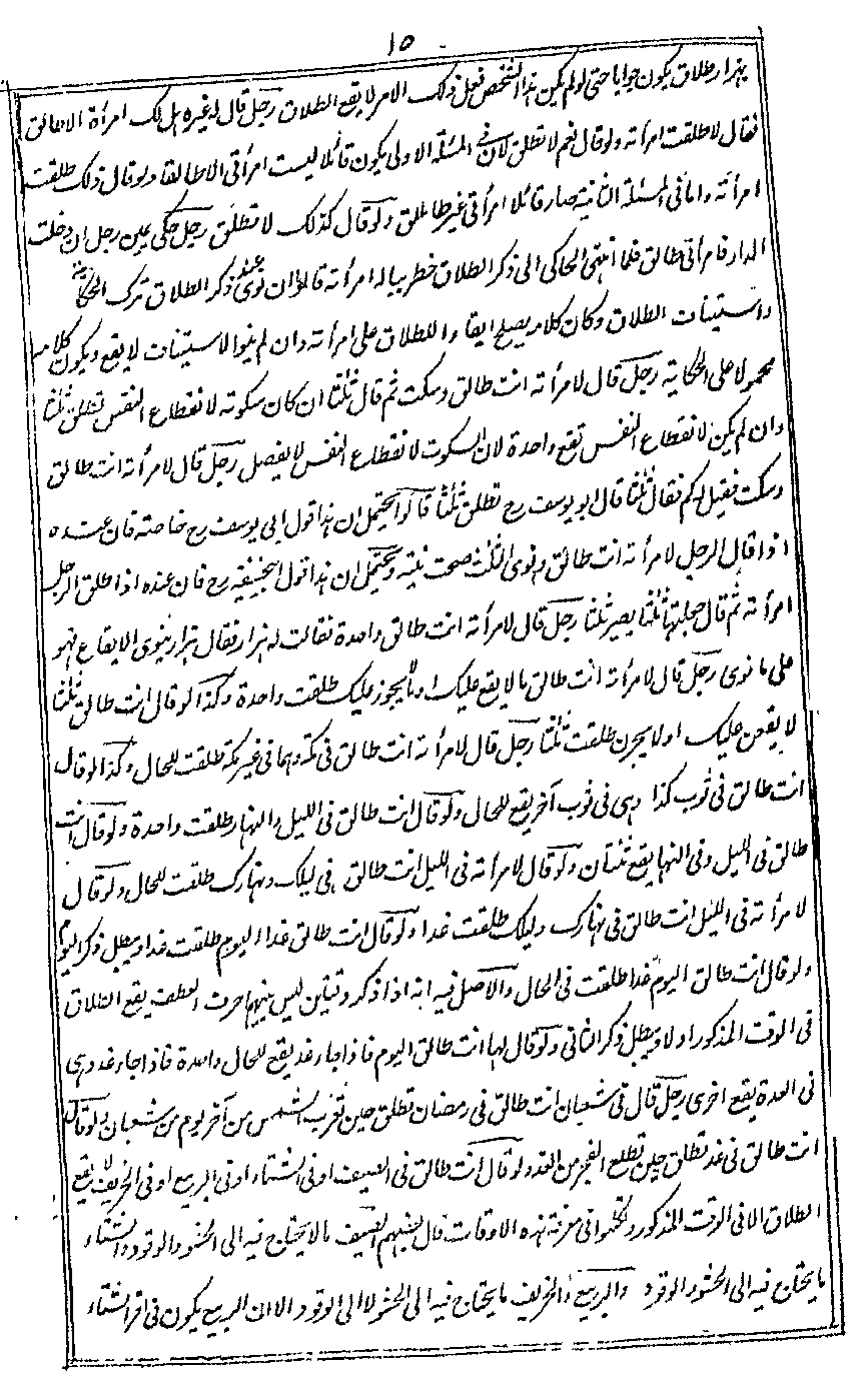 ١٥
بهزار طلاق يكون جوابا حتى لو لم يكن هذا الشخص فعل ذلك الامر لا يقع الطلاق رجل قال لغيره هل لك امرأة الا طالق
فقال لا طلقت امرأته ولو قال نعم لا تطلق لان فى المسئلة الاولى يكون قائلا ليست امرأتى الا طالقا ولو قال ذلك طلقت
امرأته واما فى المسئلة الثانية صار قائلا امرأتى غير طالق ولو قال كذلك لا تطلق رجل حكى يمين رجل ان دخلت
الدار فامرأتى طالق فلما انتهى الحاكى الى ذكر الطلاق خطر بباله امرأته قالوا ان نوى عند ذكر الطلاق ترك الحكاية
واستيناف الطلاق وكان كلامه يصلح ايقاء للطلاق على امرأته وان لم ينوا لاستيناف لا يقع ويكون كلامه
محمولا على الحكاية رجل قال لامرأته انت طالق وسكت ثم قال ثلثا ان كان سكوته لانقطاع النفس تطلق ثلثا
وان لم يكن لانقطاع النفس تقع واحدة لان السكوت لانقطاع النفس لا يفصل رجل قال لامرأته انت طالق
وسكت فقيل له كم فقال ثلثا قال ابو يوسف رح تطلق ثلثا قالوا يحتمل ان هذا قول ابى يوسف رح خاصته فان عنده
اذا قال الرجل لامرأته انت طالق ونوى الثلث صحت نيته ويحتمل ان هذا قول ابيحنيفة رح فان عنده اذا طلق الرجل
امرأته ثم قال جعلتها ثلثا يصير ثلثا رجل قال لامرأته انت طالق واحدة فقالت له هزار فقال هزار ينوى الايقاع فهو
على ما نوى رجل قال لامرأته انت طالق ما لا يقع عليك او ما لا يجوز عليك طلقت واحدة وكذا لو قال انت طالق ثلثا
لا يقعن عليك او لا يجزن طلقت ثلثا رجل قال لامرأته انت طالق فى مكة وهما فى غير مكة طلقت للحال وكذا لو قال
انت طالق فى ثوب كذا وهى فى ثوب آخر يقع للحال ولو قال انت طالق فى الليل والنهار طلقت واحدة ولو قال انت
طالق فى الليل وفى النهار يقع ثنتان ولو قال لامرأته فى الليل انت طالق فى ليلك ونهارك طلقت للحال ولو قال
لامرأته فى الليل انت طالق فى نهارك وليلك طلقت غدا ولو قال انت طالق غدا اليوم طلقت غدا ويبطل ذكر اليوم
ولو قال انت طالق اليوم غدا طلقت فى الحال والاصل فيه انه اذا ذكر وقتين ليس بينهما حرف العطف يقع الطلاق
فى الوقت المذكور اولا ويبطل ذكر الثانى ولو قال لها انت طالق اليوم فاذا جاء غد يقع للحال واحدة فاذا جاء غد وهى
فى العدة يقع اخرى رجل قال فى شعبان انت طالق فى رمضان تطلق حين تغرب الشمس من آخر يوم من شعبان ولو قال
انت طالق فى غد تطلق حين تطلع الفجر من الغد ولو قال انت طالق فى الصيف او فى الشتاء او فى الربيع او فى الخريف لا يقع
الطلاق الا فى الوقت المذكور وتكلموا فى معرفة هذه الاوقات قال بعضهم الصيف ما لا يحتاج فيه الى الحشو والوقود والشتاء
ما يحتاج فيه الى الحشو والوقود والربيع والخريف ما يحتاج فيه الى الحشو لا الى الوقود الا ان الربيع يكون فى آخر الشتاء